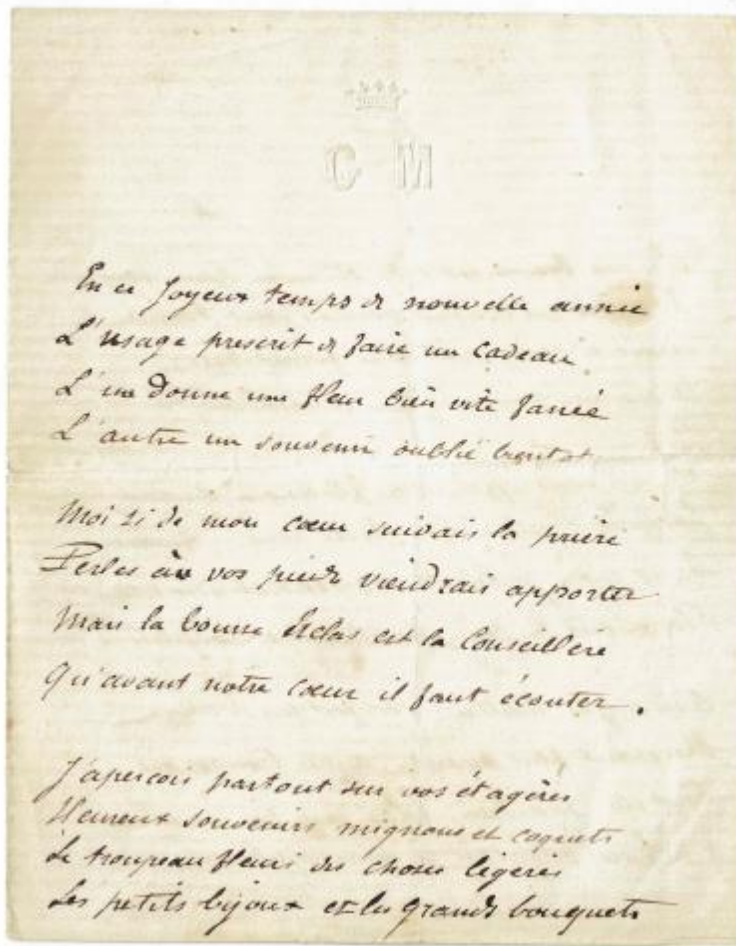 C M
En ce joyeux temps de nouvelle année
L'usage prescrit de faire un cadeau
L'un donne une fleur bien vite fanée
L'autre un souvenir oublié bientot

Moi si de mon cœur suivais la prière
Perles à vos pieds viendrais apporter
Mais la bourse hélas est la Conseillère
Qu'avant notre cœur il faut écouter.

J'apercois partout sur vos étagères
Heureux souvenirs mignons et coquets
Le troupeau fleuri des choses légères
Les petits bijoux et les grands bouquets